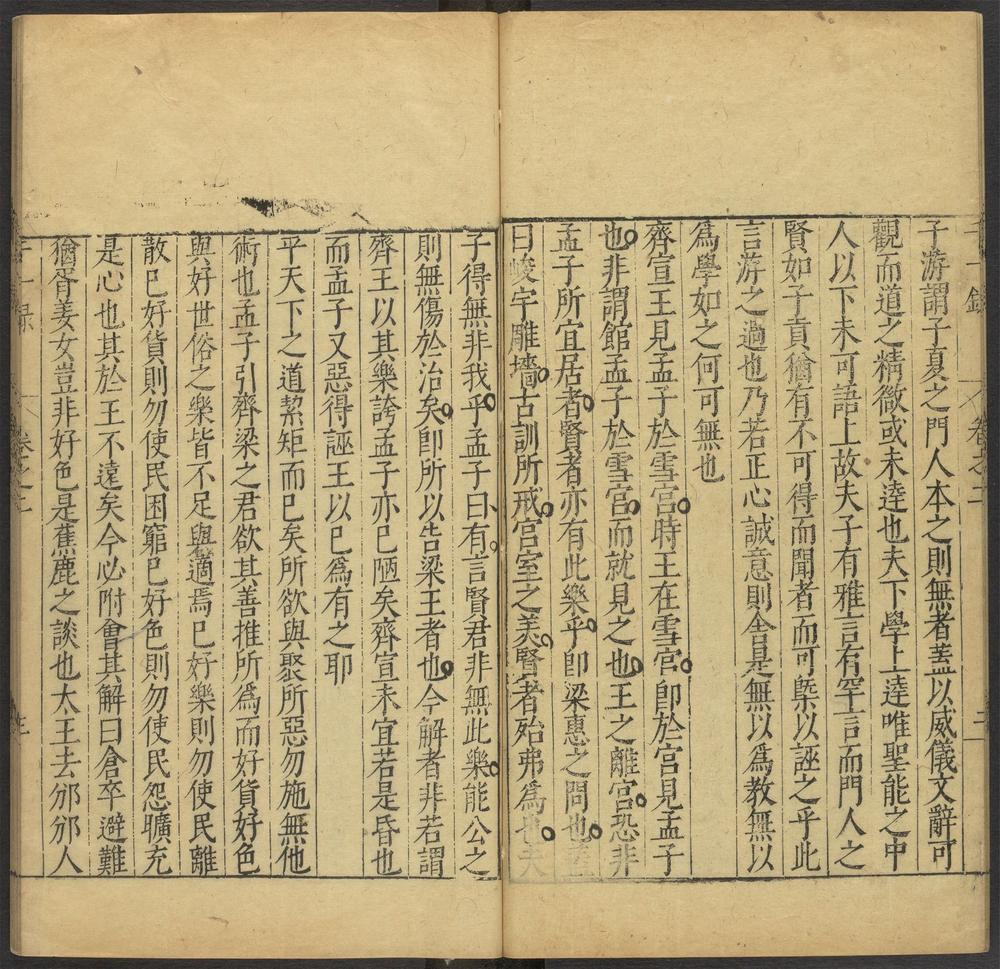 子游謂子夏之門人本之則無者蓋以威儀文辭可
觀而道之精微或未逹也夫下學上逹唯聖能之中
人以下未可語上故夫子有雅言有罕言而門人之
賢如子貢猶有不可得而聞者而可槩以誣之乎此
言游之過也乃若正心誠意則舍是無以爲教無以
爲學如之何可無也
齊宣王見孟子於雪宮時王在雪宮卽於宮見孟子
也非謂館孟子於雪宮而就見之也王之離宮恐非
孟子所宜居者賢者亦有此樂乎卽梁惠之問也蓋
曰峻宇雕墻古訓所戒宮室之美賢者殆弗爲也夫
子得無非我乎孟子曰有言賢君非無此樂能公之
則無傷於治矣卽所以告梁王者也今解者非若謂
齊王以其樂誇孟子亦已陋矣齊宣未宜若是昏也
而孟子又惡得誣王以已爲有之耶
平天下之道絜矩而已矣所欲與聚所惡勿施無他
術也孟子引齊梁之君欲其善推所爲而好貨好色
與好世俗之樂皆不足與適焉已好樂則勿使民離
散已好貨則勿使民困窮已好色則勿使民怨曠充
是心也其於王不遠矣今必附會其解曰倉卒避難
猶胥姜女豈非好色是蕉鹿之談也太王去邠邠人
卷之二